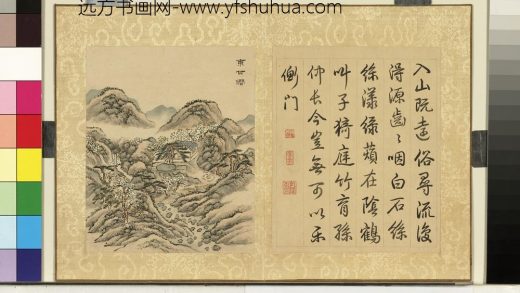 远方书画网-www.yfshuhua.com
東甘澗
入山既遠俗尋流復
得源齒〻咽白石絲
絲漾綠蘋在陰鶴
叫子猗庭竹育孫
仲長今豈無可以樂
衡門